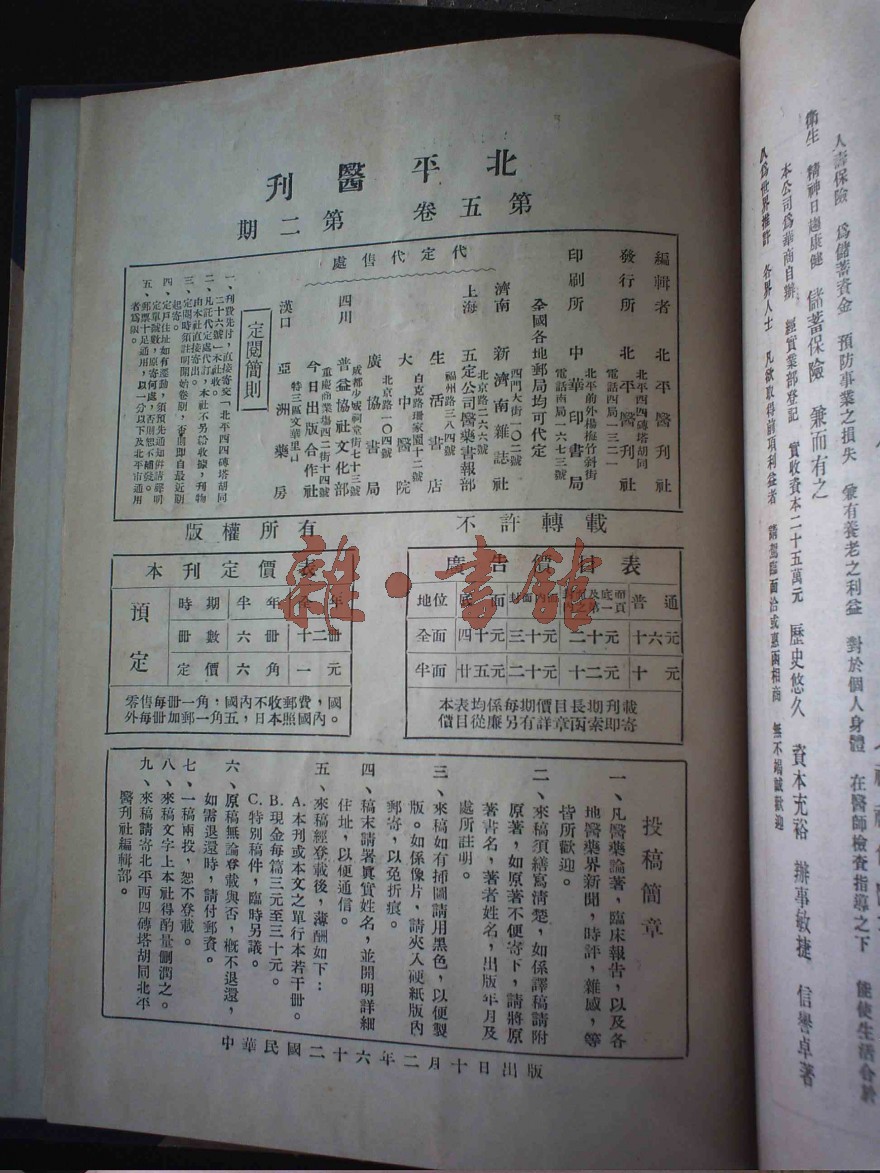 北平醫刊
第五卷 第二期
編輯者 北平醫刊社
北平西四磚塔胡同
發行所
電話西局一三二一
印刷所 中華印書局
北平前外楊梅竹斜街
電話南局一六七三
全國各地郵局均可代定
代定代售處
濟南 新濟南雜誌社
西門大街一〇二號
上海 五定公司醫藥書報部
北京路二六六號
生活書店
福州路三八四號
大中醫院
白克路珊家園十二號
廣協書局
北京路一〇四號
四川 普益協社文化部
成都少城祠堂街七十三號
今日出版合作社
重慶商業場西二街十四號
漢口 亞洲藥房
特三區文華里口
定閱簡則
一、刊費先付，直接寄交「北平西四磚塔胡同
二十六號」本社收。
二、凡託代定處代訂，本社不另給收據，刊物
由本社直接寄出。
三、定閱時須註明開始卷期，否則即自最近期
起寄。
四、定戶住址如有遷動，須預先通知併請聲明
定單號數，原寄何處，否則恕不補發。
五、郵票十足通用，以一分以下及北平市通用
者為限。
版權所有 不許轉載
本刊定價表
預定
時期 半年 全年
冊數 六冊 十二冊
定價 六角 一元
零售每冊一角，國內不收郵費，國
外每冊加郵一角五，日本照國內。
廣告價目表
地位 底面 封面內面 普通
全面 四十元 三十元 二十元 十六元
半面 廿五元 二十元 十二元 十元
本表均係每期價目長期刊載
價目從廉另有詳章函索即寄
投稿簡章
一、凡醫藥論著，臨床報告，以及各
地醫藥界新聞，時評，雜感，等
皆所歡迎。
二、來稿須繕寫清楚，如係譯稿請附
原著，如原著不便寄下，請將原
著書名，著者姓名，出版年月及
處所註明。
三、來稿如有插圖請用黑色，以便製
版。如係像片，請夾入硬紙版內
郵寄，以免折痕。
四、稿末請署真實姓名，並開明詳細
住址，以便通信。
五、來稿經登載後，薄酬如下：
A. 本刊或本文之單行本若干冊。
B. 現金每篇三元至三十元。
C. 特別稿件，臨時另議。
六、原稿無論登載與否，概不退還，
如需退還時，請付郵資。
七、一稿兩投，恕不登載。
八、來稿文字上本社得酌量刪潤之。
九、來稿請寄北平西四磚塔胡同北平
醫刊社編輯部。
中華民國二十六年二月十日出版
雜·書館
人壽保險 為儲蓄資金 預防事業之損失 兼有養老之利益 對於個人身體 在醫師檢查指導之下 能使生活合於
衛生 精神日趨康健 儲蓄保險 兼而有之
本公司為華商自辦 經實業部登記 實收資本二十五萬元 歷史悠久 資本充裕 辦事敏捷 信譽卓著
久為世界推許 各界人士 凡欲取得前項利益者 請駕臨面洽或惠函相商 無不竭誠歡迎